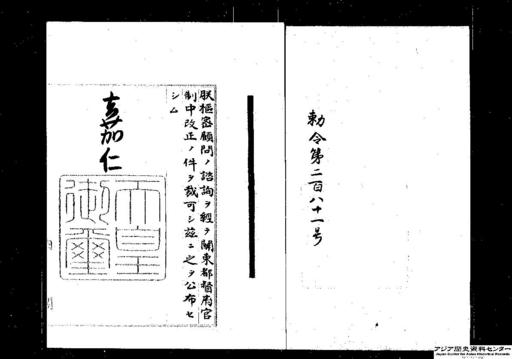 勅令第二百八十一号
朕枢密顧問ノ諮詢ヲ経テ関東都督府官
制中改正ノ件ヲ裁可シ茲ニ之ヲ公布セ
シム
嘉仁
天皇
御璽
アジア歴史資料センター
Japan Center for Asian Historical Records